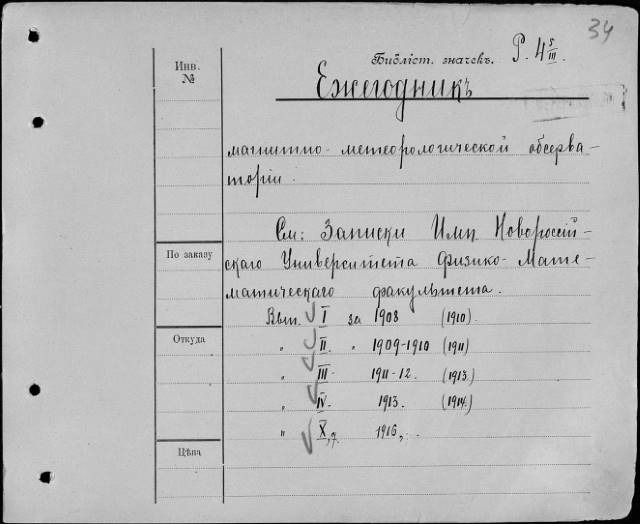 34
Библіст. значекъ. Р. 4 5/III.
Инв. №
Ежегодникъ
магнитно-метеорологической обсерва-
торіи.
См: Записки Имп. Новороссій-
скаго Университета Физико-Мате-
матическаго факультета.
По заказу
Вып. I за 1908 (1910).
" II. " 1909-1910 (1911)
Откуда
" III. 1911-12. (1913.)
" IV. 1913. (1914.)
" X, 1916,
Цѣна